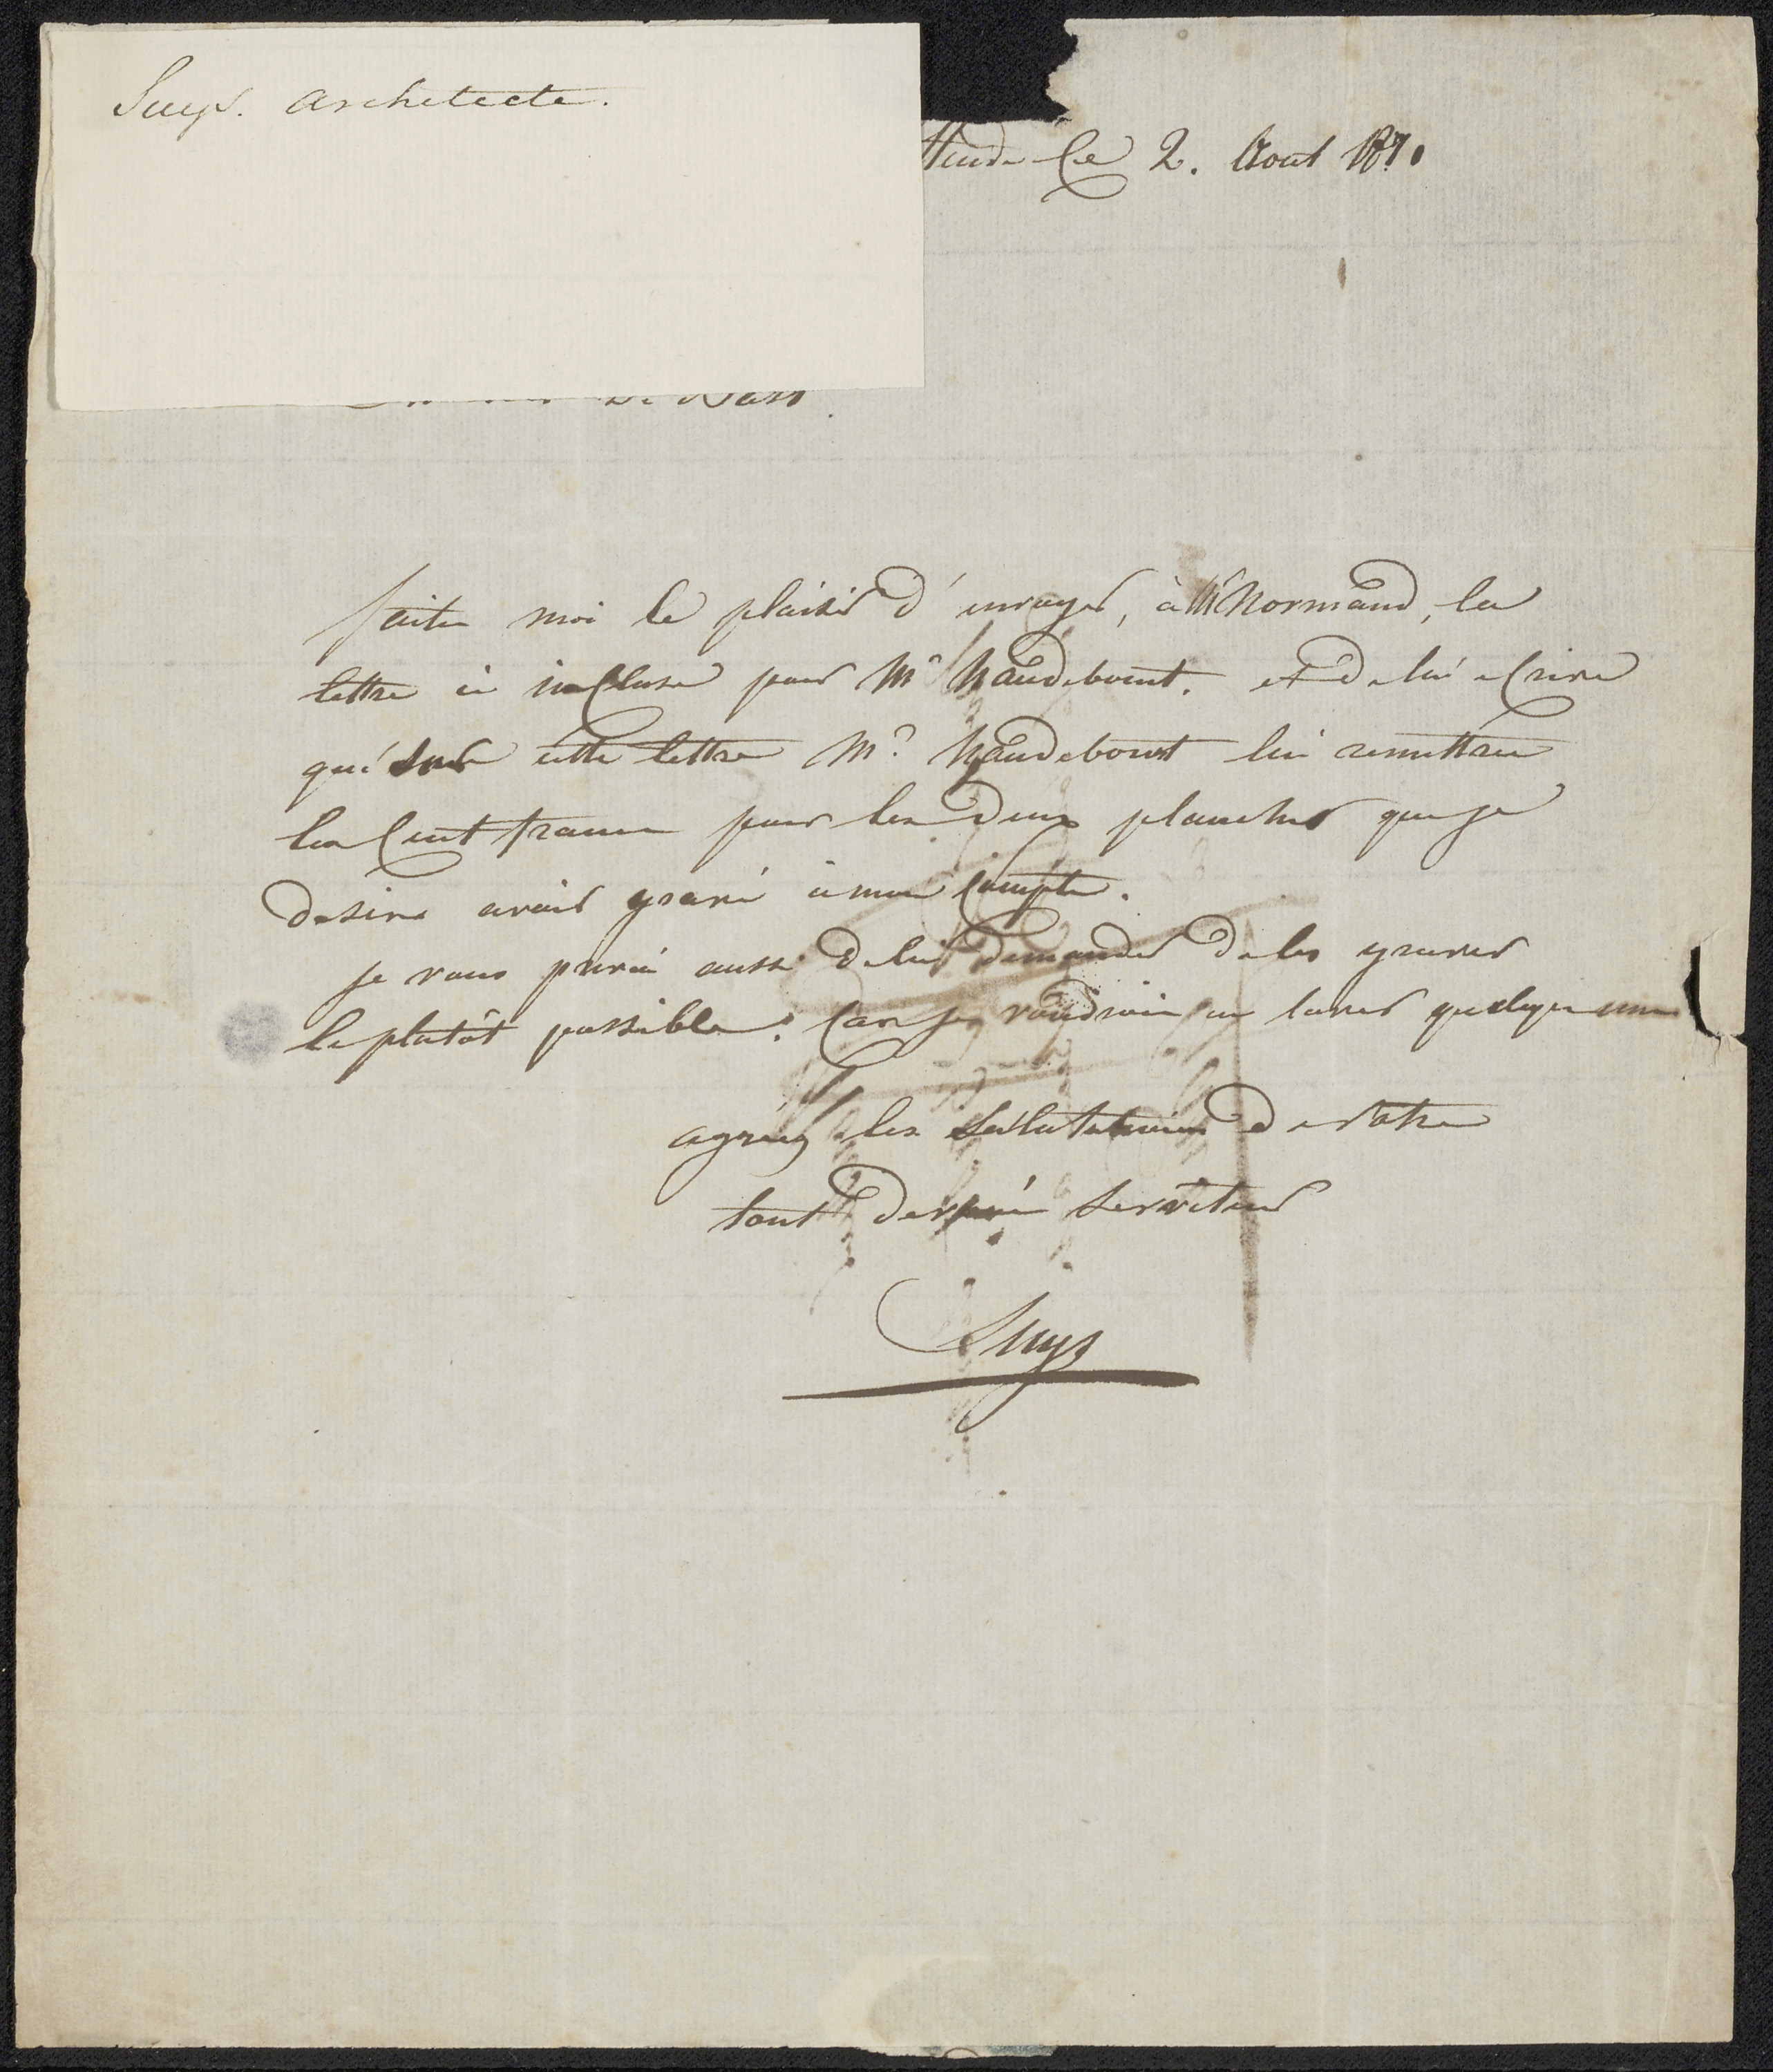 Suys. Architecte.
le 2. Aout
De Bast
faites moi le plaisir d'envoyer, à Mr Normand, la
lettre ci incluse pour Mr Haudebourt. et de lui ecrire
que sur cette lettre Mr. Haudebourt lui remettra
les Cent francs pour les deux planches que je
desire avoir gravé à mon Compte.
je vous prerai aussi de lui demander de les graver
le plutôt possible. Car je voudrois en laver quelques unes
agréez les Salutations de votre
tout devoué Serviteur
Suys